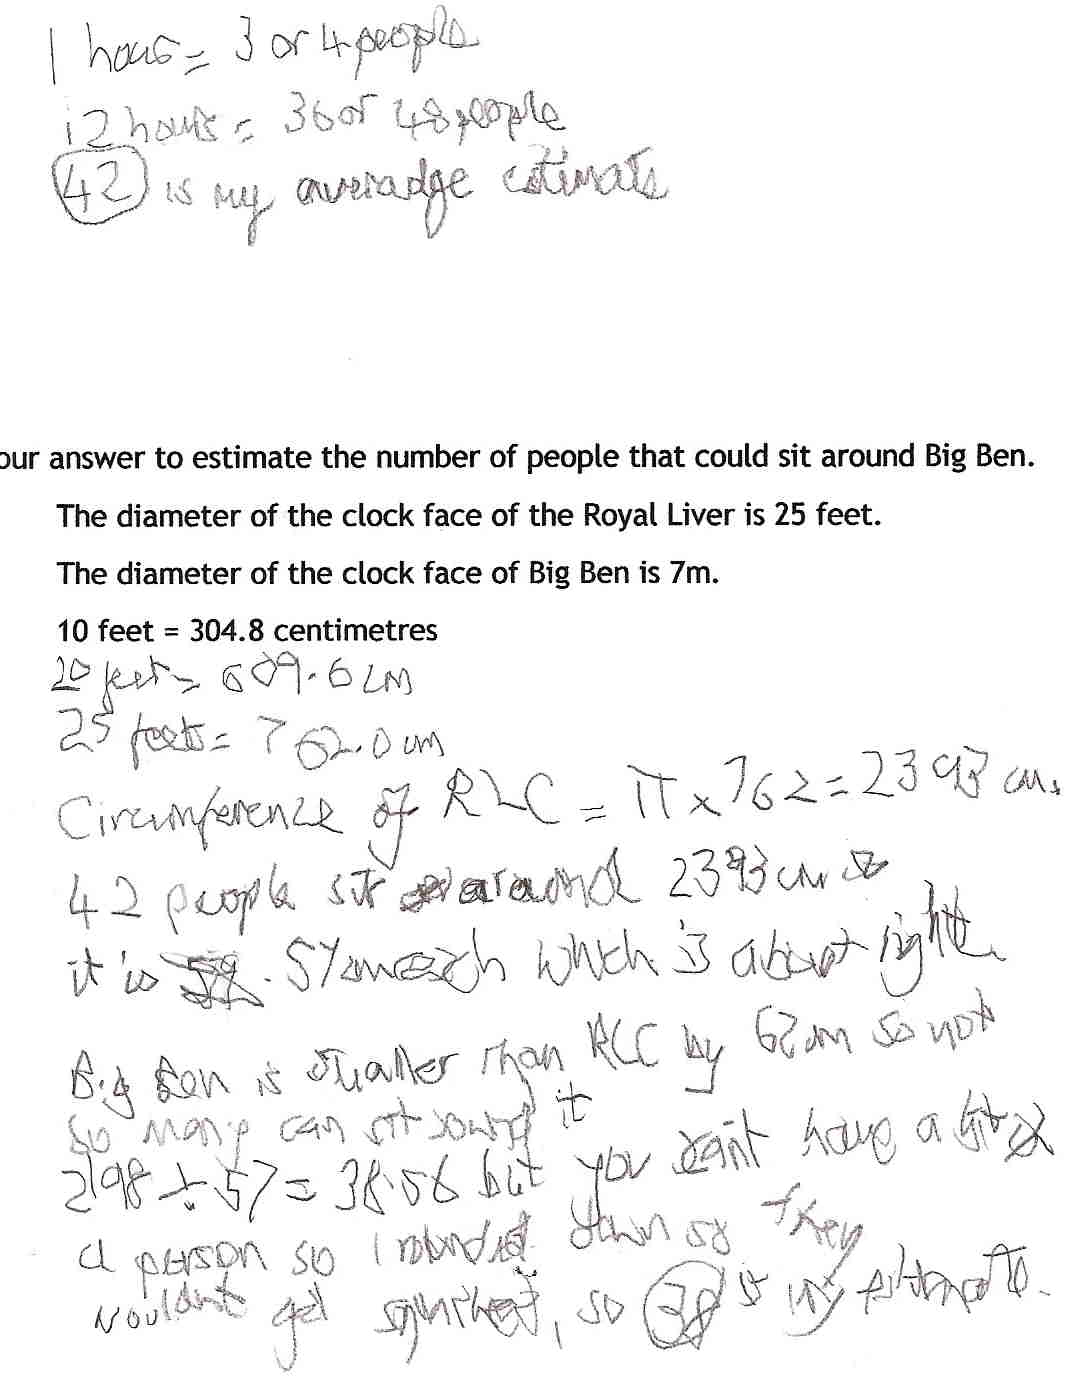 1 hour = 3 or 4 people
12 hours = 36 or 48 people
42 is my averadge estimate
our answer to estimate the number of people that could sit around Big Ben.
The diameter of the clock face of the Royal Liver is 25 feet.
The diameter of the clock face of Big Ben is 7m.
10 feet = 304.8 centimetres
20 feet = 609.6 cm
25 feet = 762.0 cm
Circumference of RLC = π x 762 = 2393 cm.
42 people sit around 2393 cm so
it is 57cm each which is about right
Big Ben is smaller than RLC by 62cm so not
so many can sit round it
2198 ÷ 57 = 38.56 but you can't have a bit of
a person so I rounded down so they
wouldn't get squished, so 38 is my estimate.